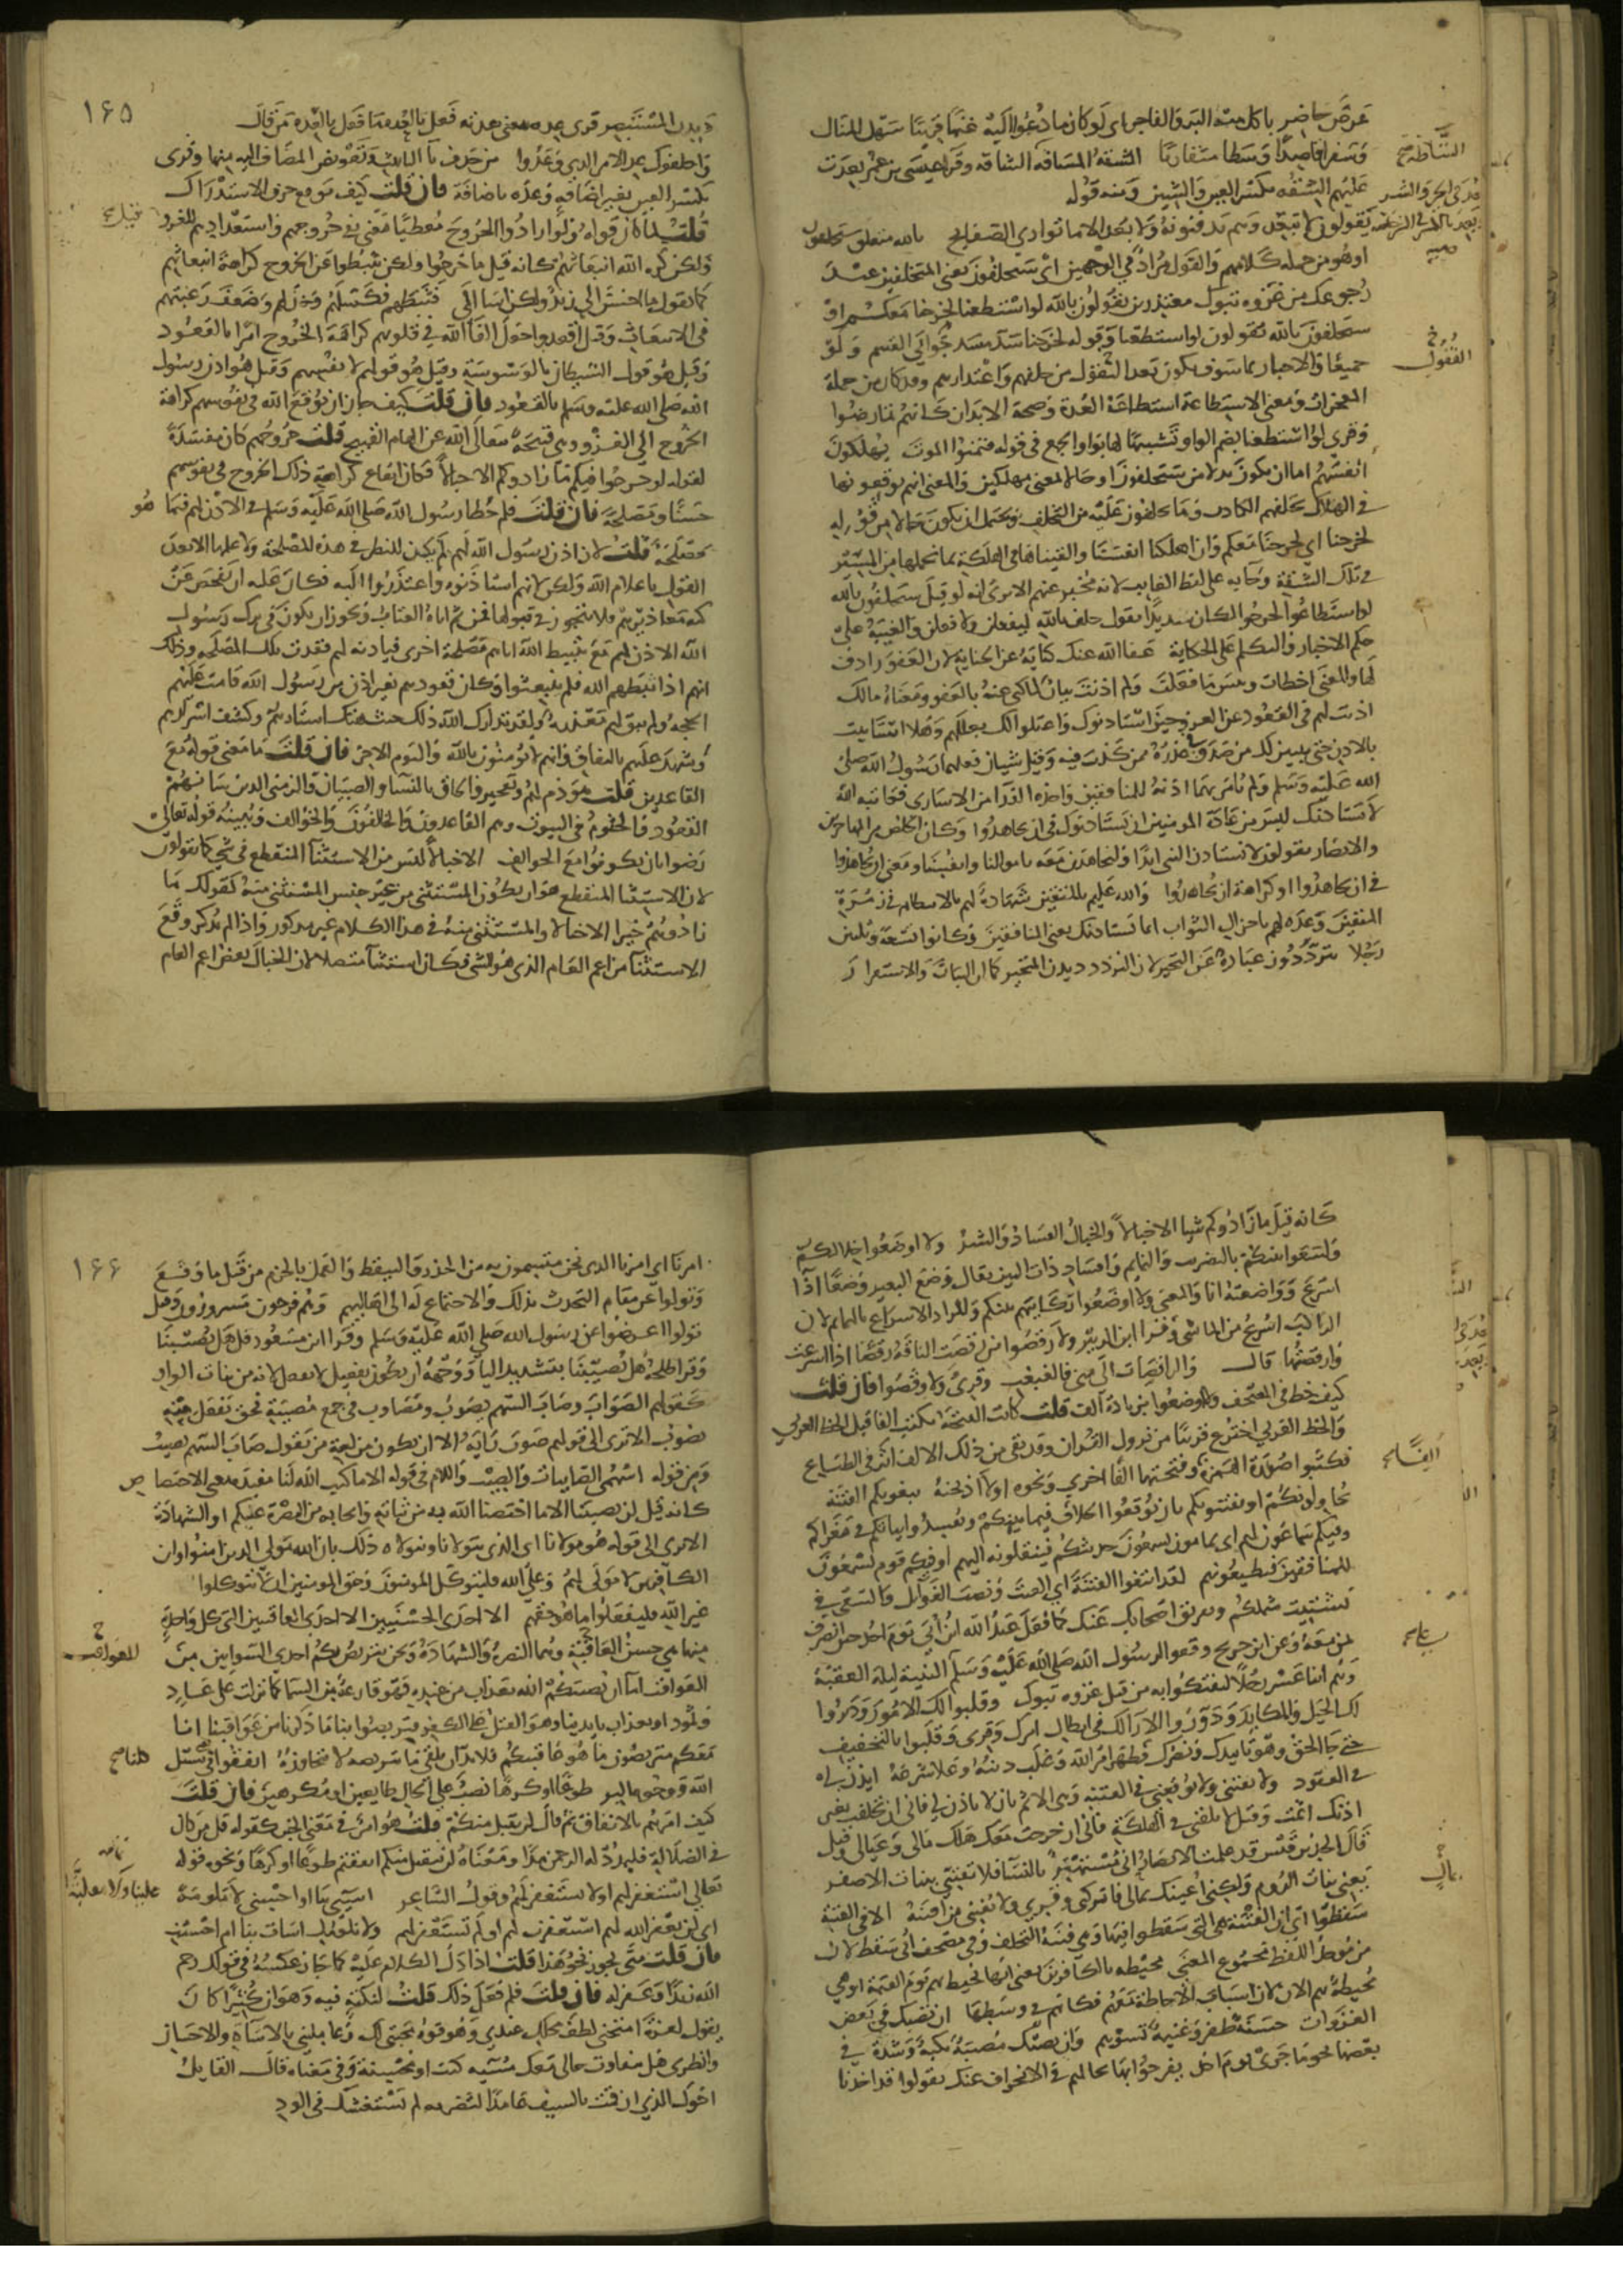 عرض حاضر ياكل منه البر والفاجر اى لو كان ما دعوا اليه غنما قريبا سهل المنال
وسفرا قاصدا وسطا متقاربا الشقة المسافه الشاقه وقرا عيسى بن عمر بعدت
عليهم الشقه بكسر العين والشين ومنه قوله
يقولون لا تبعد وهم يدفنونه ولا بعد الا ما توارى الصفايح بالله متعلق بسيحلفون
او هو من جمله كلامهم والقول مراد فى الوجهين اى سيحلفون يعنى المتخلفين عند
رجوعك من غزوه تبوك معتذرين يقولون بالله لو استطعنا لخرجنا معكم او
سيحلفون بالله يقولون لو استطعنا وقوله لخرجنا سد مسد جوابى القسم ولو
جميعا والاخبار بما سوف يكون بعد القفول من حلفهم واعتذارهم وقد كان من جملة
المعجزات ومعنى الاستطاعة استطاعة العدة وصحة الابدان كانهم تمارضوا
وقرى لو استطعنا بضم الواو تشبيها لها بواو الجمع فى قوله فتمنوا الموت يهلكون
انفسهم اما ان يكون بدلا من سيحلفون او حالا بمعنى مهلكين والمعنى انهم يوقعونها
فى الهلاك بحلفهم الكاذب وما يحلفون عليه من التخلف ويحتمل ان يكون حالا من قوله
لخرجنا اى لخرجنا معكم وان اهلكنا انفسنا والقيناها فى الهلكة بما نحملها من المسير
فى تلك الشقة وجا به على لفظ الغايب لانه مخبر عنهم الا ترى انه لو قيل سيحلفون بالله
لو استطاعوا لخرجوا لكان سديدا يقال حلف بالله ليفعلن ولافعلن والغيبة على
حكم الاخبار والتكلم على الحكاية عفا الله عنك كناية عن الجناية لان العفو رادف
لها والمعنى اخطات وبيس ما فعلت ولم اذنت بيان لما كنى عنه بالعفو ومعناه مالك
اذنت لهم فى القعود عن الغزو حين استاذنوك واعتلوا لك بعللهم وهلا استانيت
بالاذن حتى يتبين لك من صدق فى عذره ممن كذب فيه وقيل شيئان فعلهما رسول الله صلى
الله عليه وسلم ولم يؤمر بهما اذنه للمنافقين واخذه الفدا من الاسارى فعاتبه الله
لا يستاذنك ليس من عادة المومنين ان يستاذنوك فى ان يجاهدوا وكان الخلص من المهاجرين
والانصار يقولون لا نستاذن النبى ابدا ولنجاهدن معه باموالنا وانفسنا ومعنى ان يجاهدوا
فى ان يجاهدوا او كراهة ان يجاهدوا والله عليم بالمتقين شهادة لهم بالانتظام فى زمرة
المتقين وعدة لهم باجزل الثواب انما يستاذنك يعنى المنافقين وكانوا تسعة وثلثين
رجلا يترددون عبارة عن التحير لان التردد ديدن المتحير كما ان الثبات والاستقرار
القفول
١٦٥
ديدن المستبصر قرى عده بمعنى عدته فعل بالعدة ما فعل بالعدة من قال
واخلفوك عد الامر الذى وعدوا من حذف تا التانيث وتعويض المضاف اليه منها وقرى
بكسر العين بغير اضافه وعده باضافة فان قلت كيف موقع حرف الاستدراك
قلت لما كان قوله ولو ارادوا الخروج معطيا معنى نفى خروجهم واستعدادهم للغزو
ولكن كره الله انبعاثهم كانه قيل ما خرجوا ولكن تثبطوا عن الخروج كراهة انبعاثهم
كما تقول ما احسن الى زيد ولكن اسا الى فثبطهم فكسلهم وخذلهم وضعف رغبتهم
فى الانبعاث وقيل اقعدوا جعل القا الله فى قلوبهم كراهة الخروج امرا بالقعود
وقيل هو قول الشيطان بالوسوسة وقيل هو قولهم لانفسهم وقيل هو اذن رسول
الله صلى الله عليه وسلم بالقعود فان قلت كيف جاز ان يوقع الله فى نفوسهم كراهة
الخروج الى الغزو وهى قبيحة وتعالى الله عن الهام القبيح قلت خروجهم كان مفسدة
لقوله لو خرجوا فيكم ما زادوكم الا خبالا فكان ايقاع كراهة ذلك الخروج فى نفوسهم
حسنا ومصلحة فان قلت فلم خطا رسول الله صلى الله عليه وسلم فى الاذن لهم فيما هو
مصلحة قلت لان اذن رسول الله لهم لم يكن للنظر فى هذه المصلحة ولا علمها الا بعد
القفول باعلام الله ولكن لانهم استاذنوه واعتذروا اليه فكان عليه ان يفحص عن
كنه معاذيرهم ولا يتجوز فى قبولها فمن ثم اتاه العتاب ويجوز ان يكون فى ترك رسول
الله الاذن لهم مع تثبيط الله اياهم مصلحة اخرى فباذنه لهم فقدت تلك المصلحه وذلك
انهم اذا ثبطهم الله فلم ينبعثوا وكان قعودهم بغير اذن من رسول الله قامت عليهم
الحجه ولم يبق لهم معذره ولقد تدارك الله ذلك حيث هتك استارهم وكشف اسرارهم
وشهد عليهم بالنفاق وانهم لا يؤمنون بالله واليوم الاخر فان قلت ما معنى قوله مع
القاعدين قلت هو ذم لهم وتعجيز والحاق بالنسا والصبيان والزمنى الذين شانهم
القعود والجثوم فى البيوت وهم القاعدون والخالفون والخوالف ويبينه قوله تعالى
رضوا بان يكونوا مع الخوالف الا خبالا ليس من الاستثنا المنقطع فى شى كما تقولون
لان الاستثنا المنقطع هو ان يكون المستثنى من غير جنس المستثنى منه كقولك ما
زادوكم خيرا الا خبالا والمستثنى منه فى هذا الكلام غير مذكور واذا لم يذكر وقع
الاستثنا من اعم العام الذى هو الشى فكان استثنا متصلا لان الخبال بعض اعم العام
كانه قيل ما زادوكم شيا الا خبالا والخبال الفساد والشر ولا اوضعوا خلالكم
ولسعوا بينكم بالتضريب والنمايم وافساد ذات البين يقال وضع البعير وضعا اذا
اسرع واوضعته انا والمعنى ولا اوضعوا ركايبهم بينكم والمراد الاسراع بالنمايم لان
الراكب اسرع من الماشى وقرا ابن الزبير ولا رقصوا من رقصت الناقة رقصا اذا اسرعت
وارقصتها قال والراقصات الى منى فالغبغب وقرى ولا وفضوا فان قلت
كيف خط فى المصحف ولا اوضعوا بزيادة الف قلت كانت الفتحة تكتب الفا قبل الخط العربى
والخط العربى اخترع قريبا من نزول القران وقد بقى من ذلك الالف اثر فى الطباع
فكتبوا صورة الهمزة الفا وفتحتها الفا اخرى ونحوه او لا اذبحنه يبغونكم الفتنة
يحاولون ان يفتنوكم بان يوقعوا الخلاف فيما بينكم ويفسدوا نياتكم فى مغزاكم
وفيكم سماعون لهم اى نمامون يسمعون حديثكم فينقلونه اليهم او فيكم قوم يسمعون
للمنافقين ويطيعونهم لقد ابتغوا الفتنة اى العنت ونصب الغوايل والسعى فى
تشتيت شملكم وتفريق اصحابك عنك كما فعل عبد الله بن ابى يوم احد حين انصرف
بمن معه وعن ابن جريج وقفوا لرسول الله صلى الله عليه وسلم على الثنية ليلة العقبة
وهم اثنا عشر رجلا ليفتكوا به من قبل غزوه تبوك وقلبوا لك الامور ودبروا
لك الحيل والمكايد ودوروا الارا لك فى ابطال امرك وقرى وقلبوا بالتخفيف
حتى جا الحق وهو تاييدك ونصرك وظهر امر الله وغلب دينه وعلا شرعه ايذن لى
فى القعود ولا تفتنى ولا توقعنى فى الفتنة وهى الاثم بان لا تاذن لى فانى ان تخلفت بغير
اذنك اثمت وقيل لا تلقنى فى الهلكة فانى ان خرجت معك هلك مالى وعيالى وقيل
قال الجد بن قيس قد علمت الانصار انى مستهتر بالنسا فلا تفتنى ببنات الاصفر
يعنى بنات الروم ولكنى اعينك بمالى فاتركنى وقرى ولا تفتنى من افتنه الا فى الفتنة
سقطوا اى ان الفتنة هى التى سقطوا فيها وهى فتنة التخلف وفى مصحف ابى سقط لان
من موحد اللفظ مجموع المعنى لمحيطه بالكافرين يعنى انها تحيط بهم يوم القيمة او هى
محيطة بهم الان لان اسباب الاحاطة معهم فكانهم فى وسطها ان تصبك فى بعض
الغزوات حسنة ظفر وغنيمة تسؤهم وان تصبك مصيبة نكبة وشدة فى
بعضها نحو ما جرى يوم احد يفرحوا بها بحالهم فى الانحراف عنك يقولوا قد اخذنا
١٦٦
امرنا اى امرنا الذى نحن متسمون به من الحذر والتيقظ والعمل بالحزم من قبل ما وقع
وتولوا عن مقام التحدث بذلك والاجتماع له الى اهاليهم وهم فرحون مسرورون وقيل
تولوا اعرضوا عن رسول الله صلى الله عليه وسلم وقرا ابن مسعود قل هل يصيبنا
وقرا طلحة هل يصيبنا بتشديد اليا ووجهه ان يكون يفيعل لا يفعل لانه من بنات الواو
كقولهم الصواب وصاب السهم يصوب ومصاوب فى جمع مصيبة فحق يفعل منه
يصوب الا ترى الى قولهم صوب رايه الا ان يكون من لغة من يقول صاب السهم يصيب
ومن قوله اسهمى الصايبات والصيب واللام فى قوله الا ما كتب الله لنا مفيدة معنى الاختصاص
كانه قيل لن يصيبنا الا ما اختصنا الله به من اثباته وايجابه من النصرة عليكم او الشهادة
الا ترى الى قوله هو مولانا اى الذى يتولانا ونتولاه ذلك بان الله مولى الذين امنوا وان
الكافرين لا مولى لهم وعلى الله فليتوكل المومنون وحق المومنين ان لا يتوكلوا
غير الله فليفعلوا ما هو حقهم الا احدى الحسنيين الا احدى العاقبتين التى كل واحدة
منهما هى حسنى العاقبة وهما النصرة والشهادة ونحن نتربص بكم احدى السوايين من
العواقب اما ان يصيبكم الله بعذاب من عنده وهو قارعة من السما كما نزلت على عاد
وثمود او بعذاب بايدينا وهو القتل على الكفر فتربصوا بنا ما ذكرنا من عواقبنا انا
معكم متربصون ما هو عاقبتكم فلا بد ان يلقى كلنا ما يتربصه لا يتجاوزه انفقوا فى سبيل
الله ووجوه البر طوعا او كرها نصب على الحال طايعين او مكرهين فان قلت
كيف امرهم بالانفاق ثم قال لن يتقبل منكم قلت هو امر فى معنى الخبر كقوله قل من كان
فى الضلالة فليمدد له الرحمن مدا ومعناه لن يتقبل منكم انفقتم طوعا او كرها ونحوه قوله
تعالى استغفر لهم او لا تستغفر لهم وقول الشاعر اسيى بنا او احسنى لا ملومة
اى لن يغفر الله لهم استغفرت لهم او لم تستغفر لهم ولا نلومك اسات بنا ام احسنت
فان قلت متى يجوز نحو هذا قلت اذا دل الكلام عليه كما جاز عكسه فى قولك رحم
الله زيدا وغفر له فان قلت فلم فعل ذلك قلت لنكتة فيه وهو ان كثيرا كان
يقول لعزة امتحنى لطف محلك عندى وقوة محبتى لك وعاملينى بالاساة والاحسان
وانظرى هل يتفاوت حالى معك مسيية كنت او محسنة وفى معناه قال القايل
اخوك الذى ان قمت بالسيف عامدا لتضربه لم يستغشك فى الود